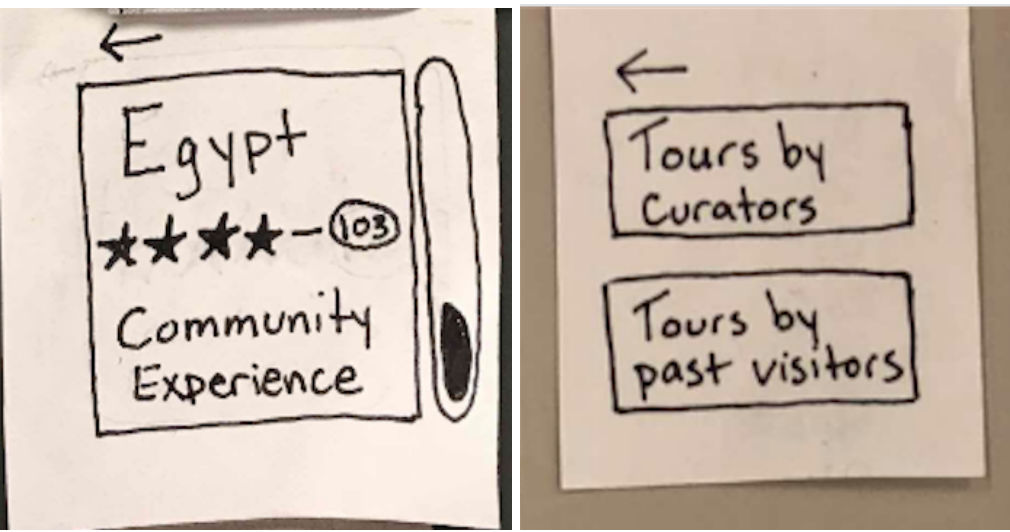 Egypt
★★★★– 103
Community
Experience
Tours by
Curators
Tours by
past visitors